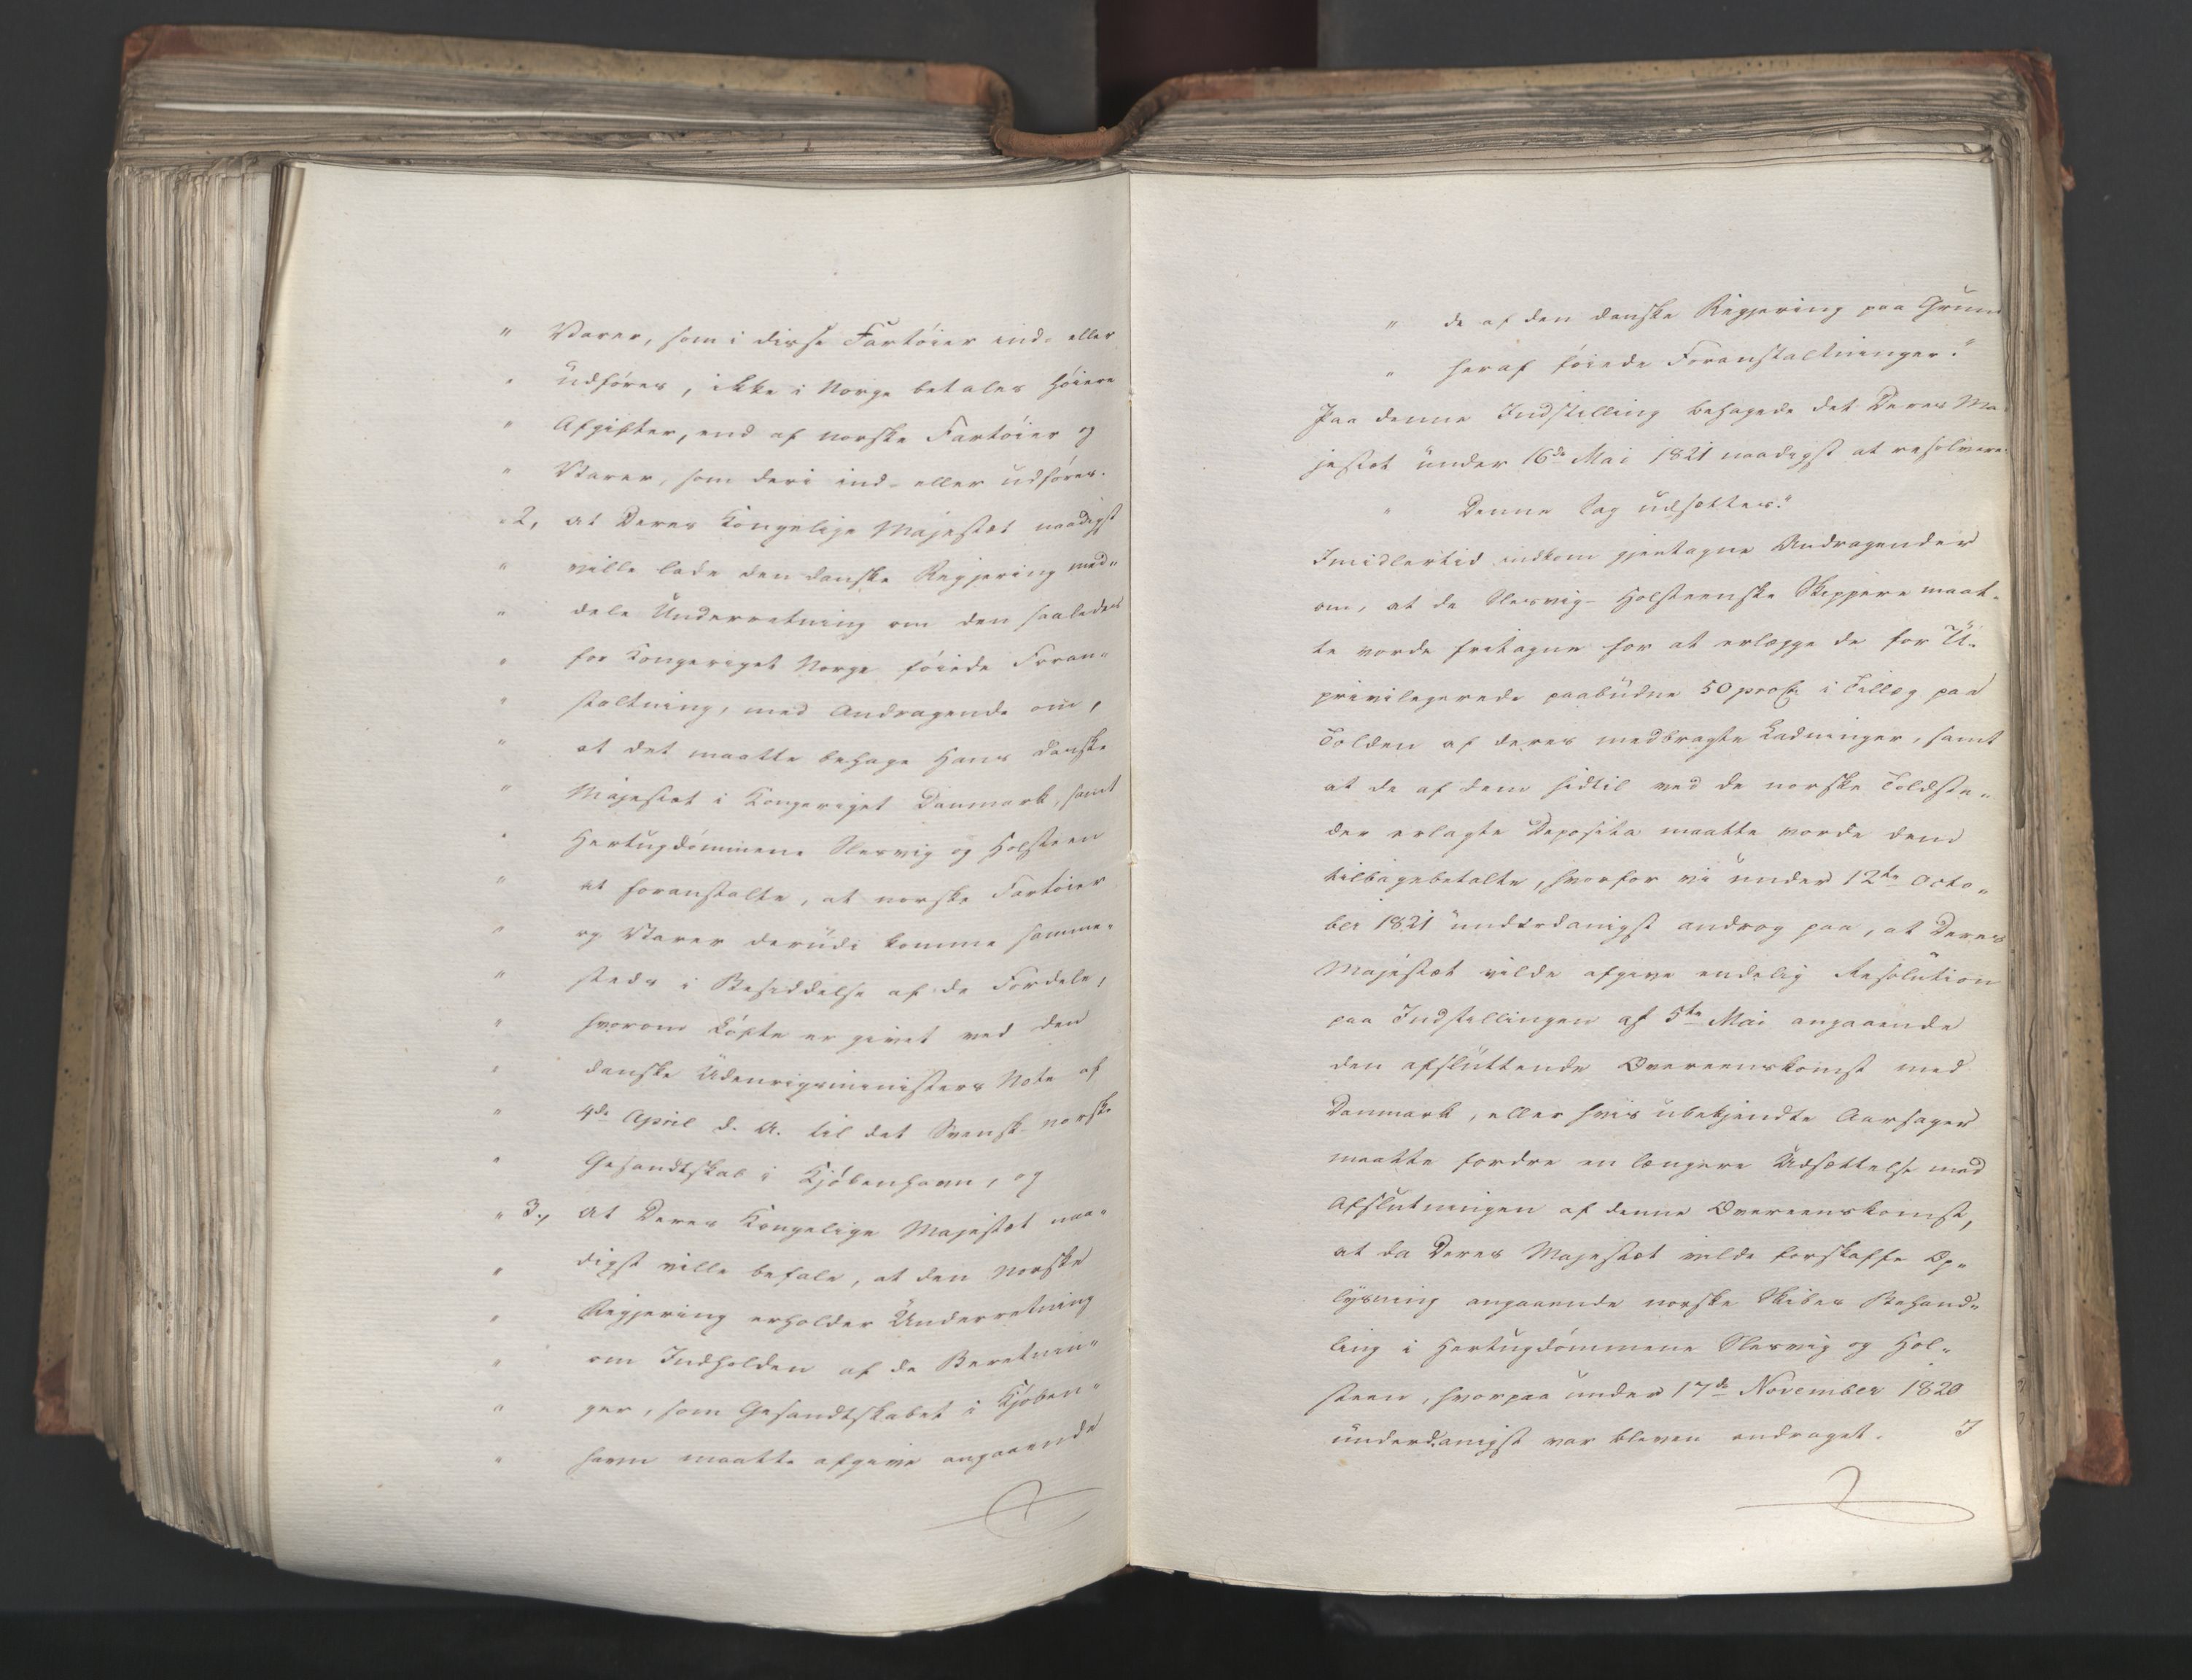 " Varer, som i disse Fartöier ind- eller
" udföres, ikke i Norge betales höiere
" Afgifter, end af norske Fartöier og
" Varer, som deri ind- eller udföres.
" 2, at Deres Kongelige Majestæt naadigst
" ville lade den danske Regjering med„
" dele Underretning om den saaledes
" for Kongeriget Norge föiede Foran„
" staltning, med Andragende om,
" at det maatte behage Hans danske
" Majestæt i Kongeriget Danmark, samt
" Hertugdömmene Slesvig og Holsteen
" at foranstalte, at norske Fartöier
" og Varer derudi komme samme„
" steds i Besiddelse af de Fordele,
" hvorom Löfte er givet ved den
" danske Udenrigsministers Note af
" 4de April d. A. til det Svensk-norske
" Gesandtskab i Kjöbenhavn, og
" 3, at Deres Kongelige Majestæt naa„
" digst ville befale, at den norske
" Regjering erholder Underretning
" om Indholden af de Beretnin„
" ger, som Gesandtskabet i Kjöben„
" havn maatte afgive angaaende
" de af den danske Regjering paa Grund
" heraf föiede Foranstaltninger."
Paa denne Indstilling behagede det Deres Ma-
jestæt under 16de Mai 1821 naadigst at resolvere:
" Denne Sag udsættes."
Imidlertid indkom gjentagne Andragender
om, at de Slesvig-Holsteenske Skippere maat„
te vorde fritagne for at erlægge de for U„
privilegerede paabudne 50 proCt. i Tillæg paa
Tolden af deres medbragte Ladninger, samt
at de af dem hidtil ved de norske Toldste„
der erlagte Deposita maatte vorde dem
tilbagebetalte, hvorfor vi under 12te Octo„
ber 1821 underdanigst androg paa, at Deres
Majestæt vilde afgive endelig Resolution
paa Indstillingen af 5te Mai angaaende
den afsluttende Overeenskomst med
Danmark, eller hvis ubekjendte Aarsager
maatte fordre en længere Udsættelse med
Afslutningen af denne Overeenskomst,
at da Deres Majestæt vilde forskaffe Op„
lysning angaaende norske Skibes Behand„
ling i Hertugdömmene Slesvig og Hol„
steen, hvorpaa under 17de November 1820
underdanigst var bleven andraget. I